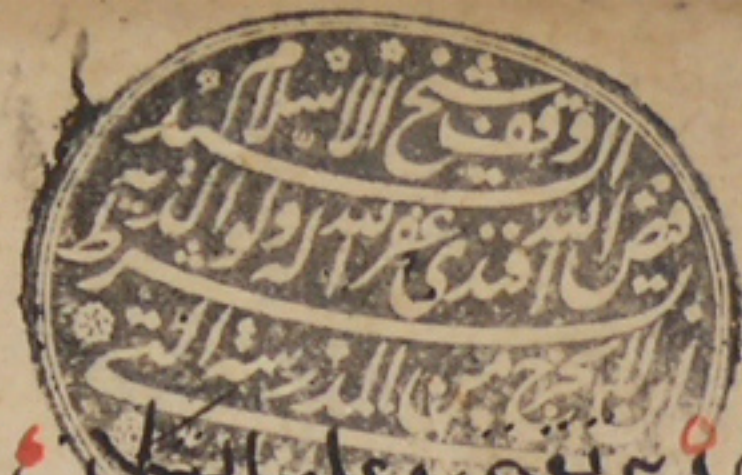 وقف شيخ الاسلام السيد
فيض الله افندى غفر الله له ولوالديه بشرط
ان لا يخرج من المدرسة التى